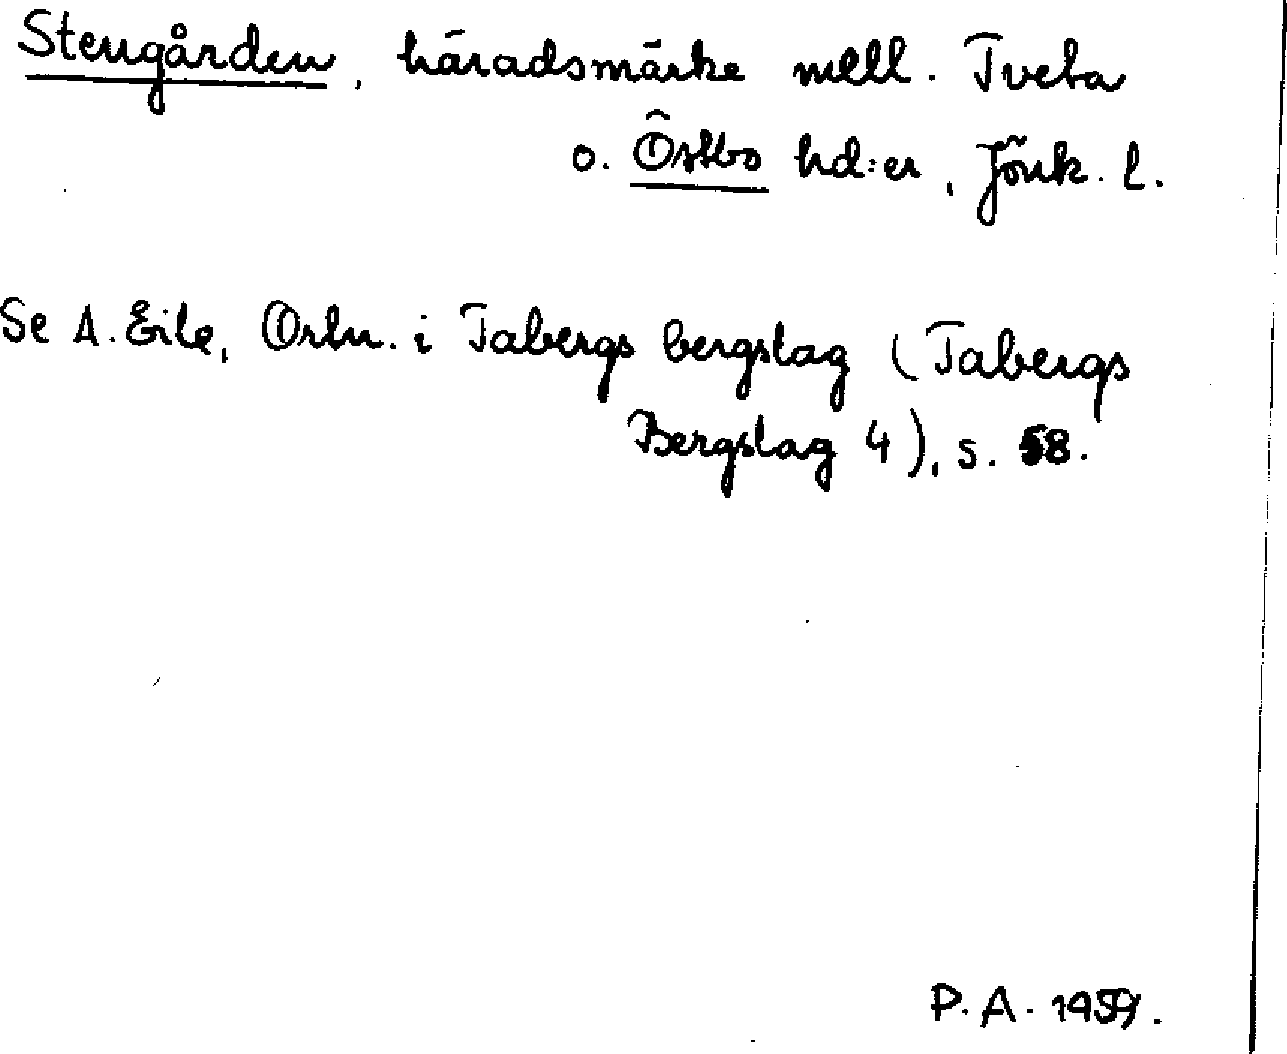 Stengården, häradsmärke mell. Tveta
o. Östbo hd:er, Jönk. l.
Se A. Ejle, Ortn. i Tabergs bergslag (Tabergs
Bergslag 4), s. 58.
P. A. 1959.